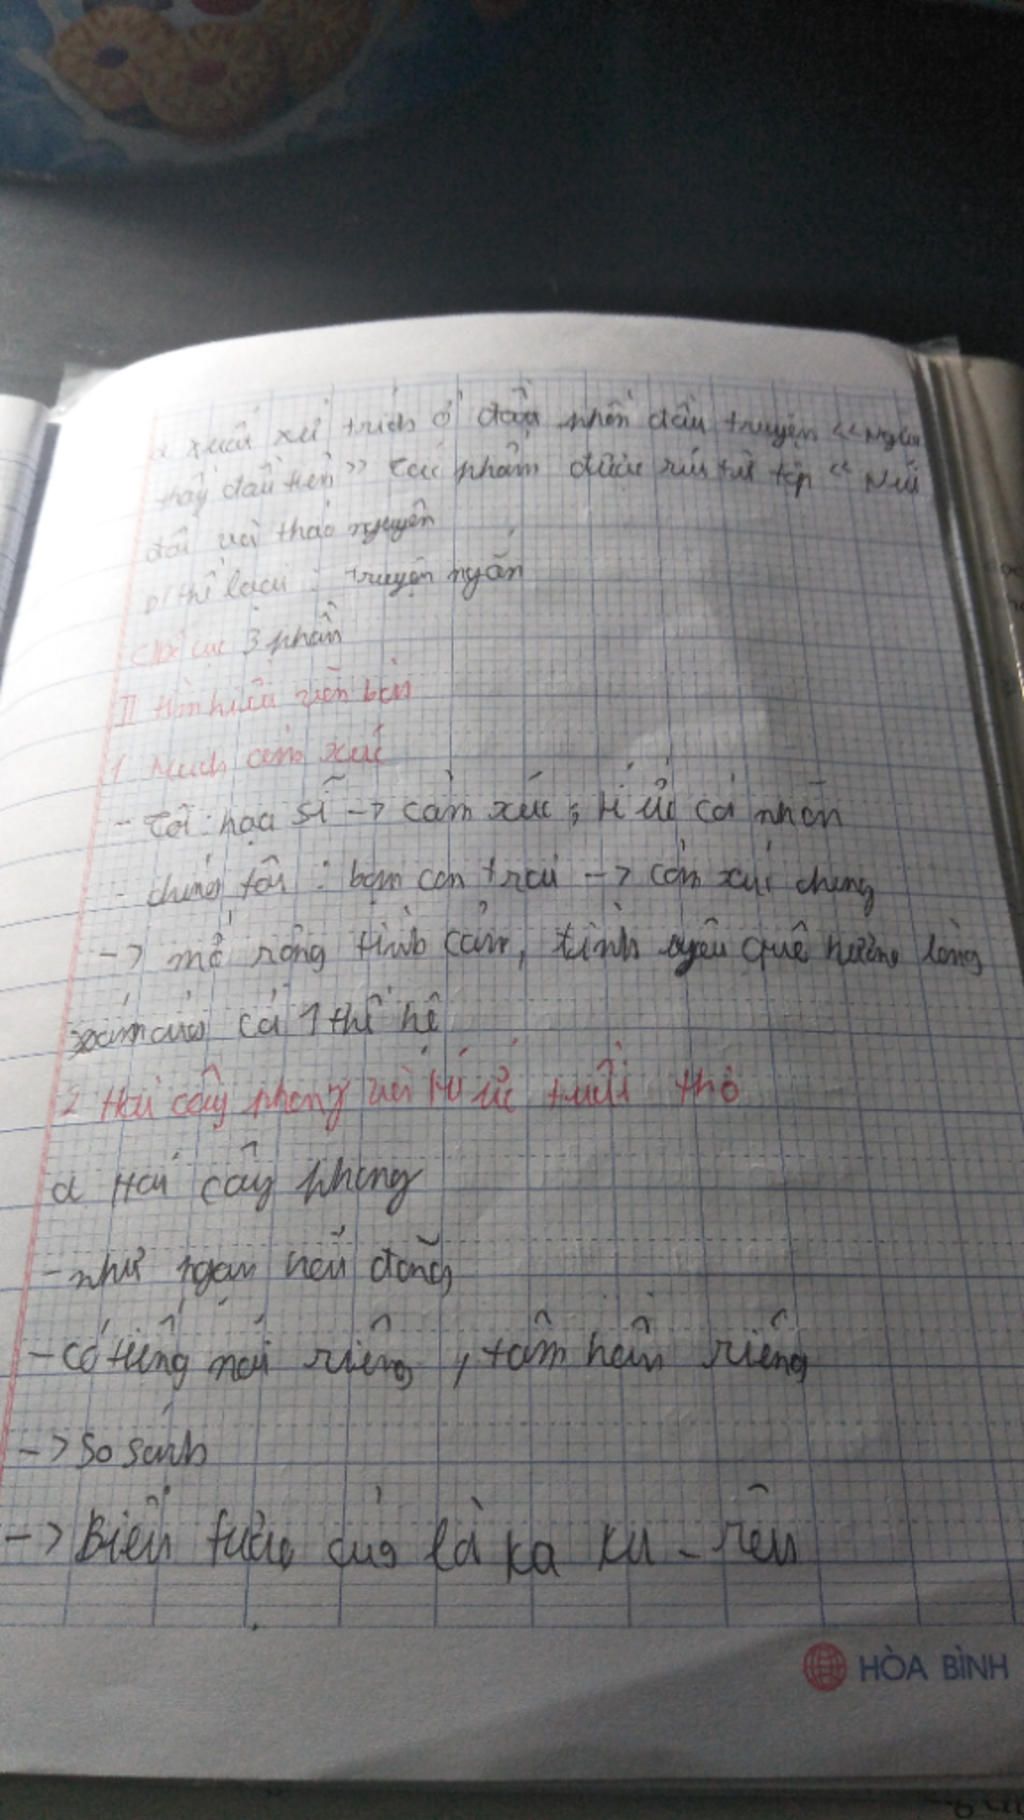 a xuất xứ trích ở đoạn phần đầu truyện "Người
thầy đầu tiên" Tác phẩm được rút từ tập "Núi
đồi và thảo nguyên
b/ thể loại : truyện ngắn
c/ Bố cục 3 phần
II tìm hiểu văn bản
1 Mạch cảm xúc
- Tôi: họa sĩ -> cảm xúc, kí ức cá nhân
- chúng tôi : bọn con trai -> cảm xúc chung
-> mở rộng tình cảm, tình yêu quê hương lòng
của cả 1 thế hệ
2 Hai cây phong và kí ức tuổi thơ
a Hai cây phong
- như ngọn hải đăng
- có tiếng nói riêng, tâm hồn riêng
-> So sánh
-> Biểu tượng của là ka ku - rêu
HÒA BÌNH